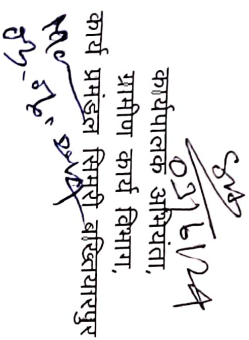 03/6/24
कार्यपालक अभियंता,
ग्रामीण कार्य विभाग,
कार्य प्रमंडल सिमरी बख्तियारपुर